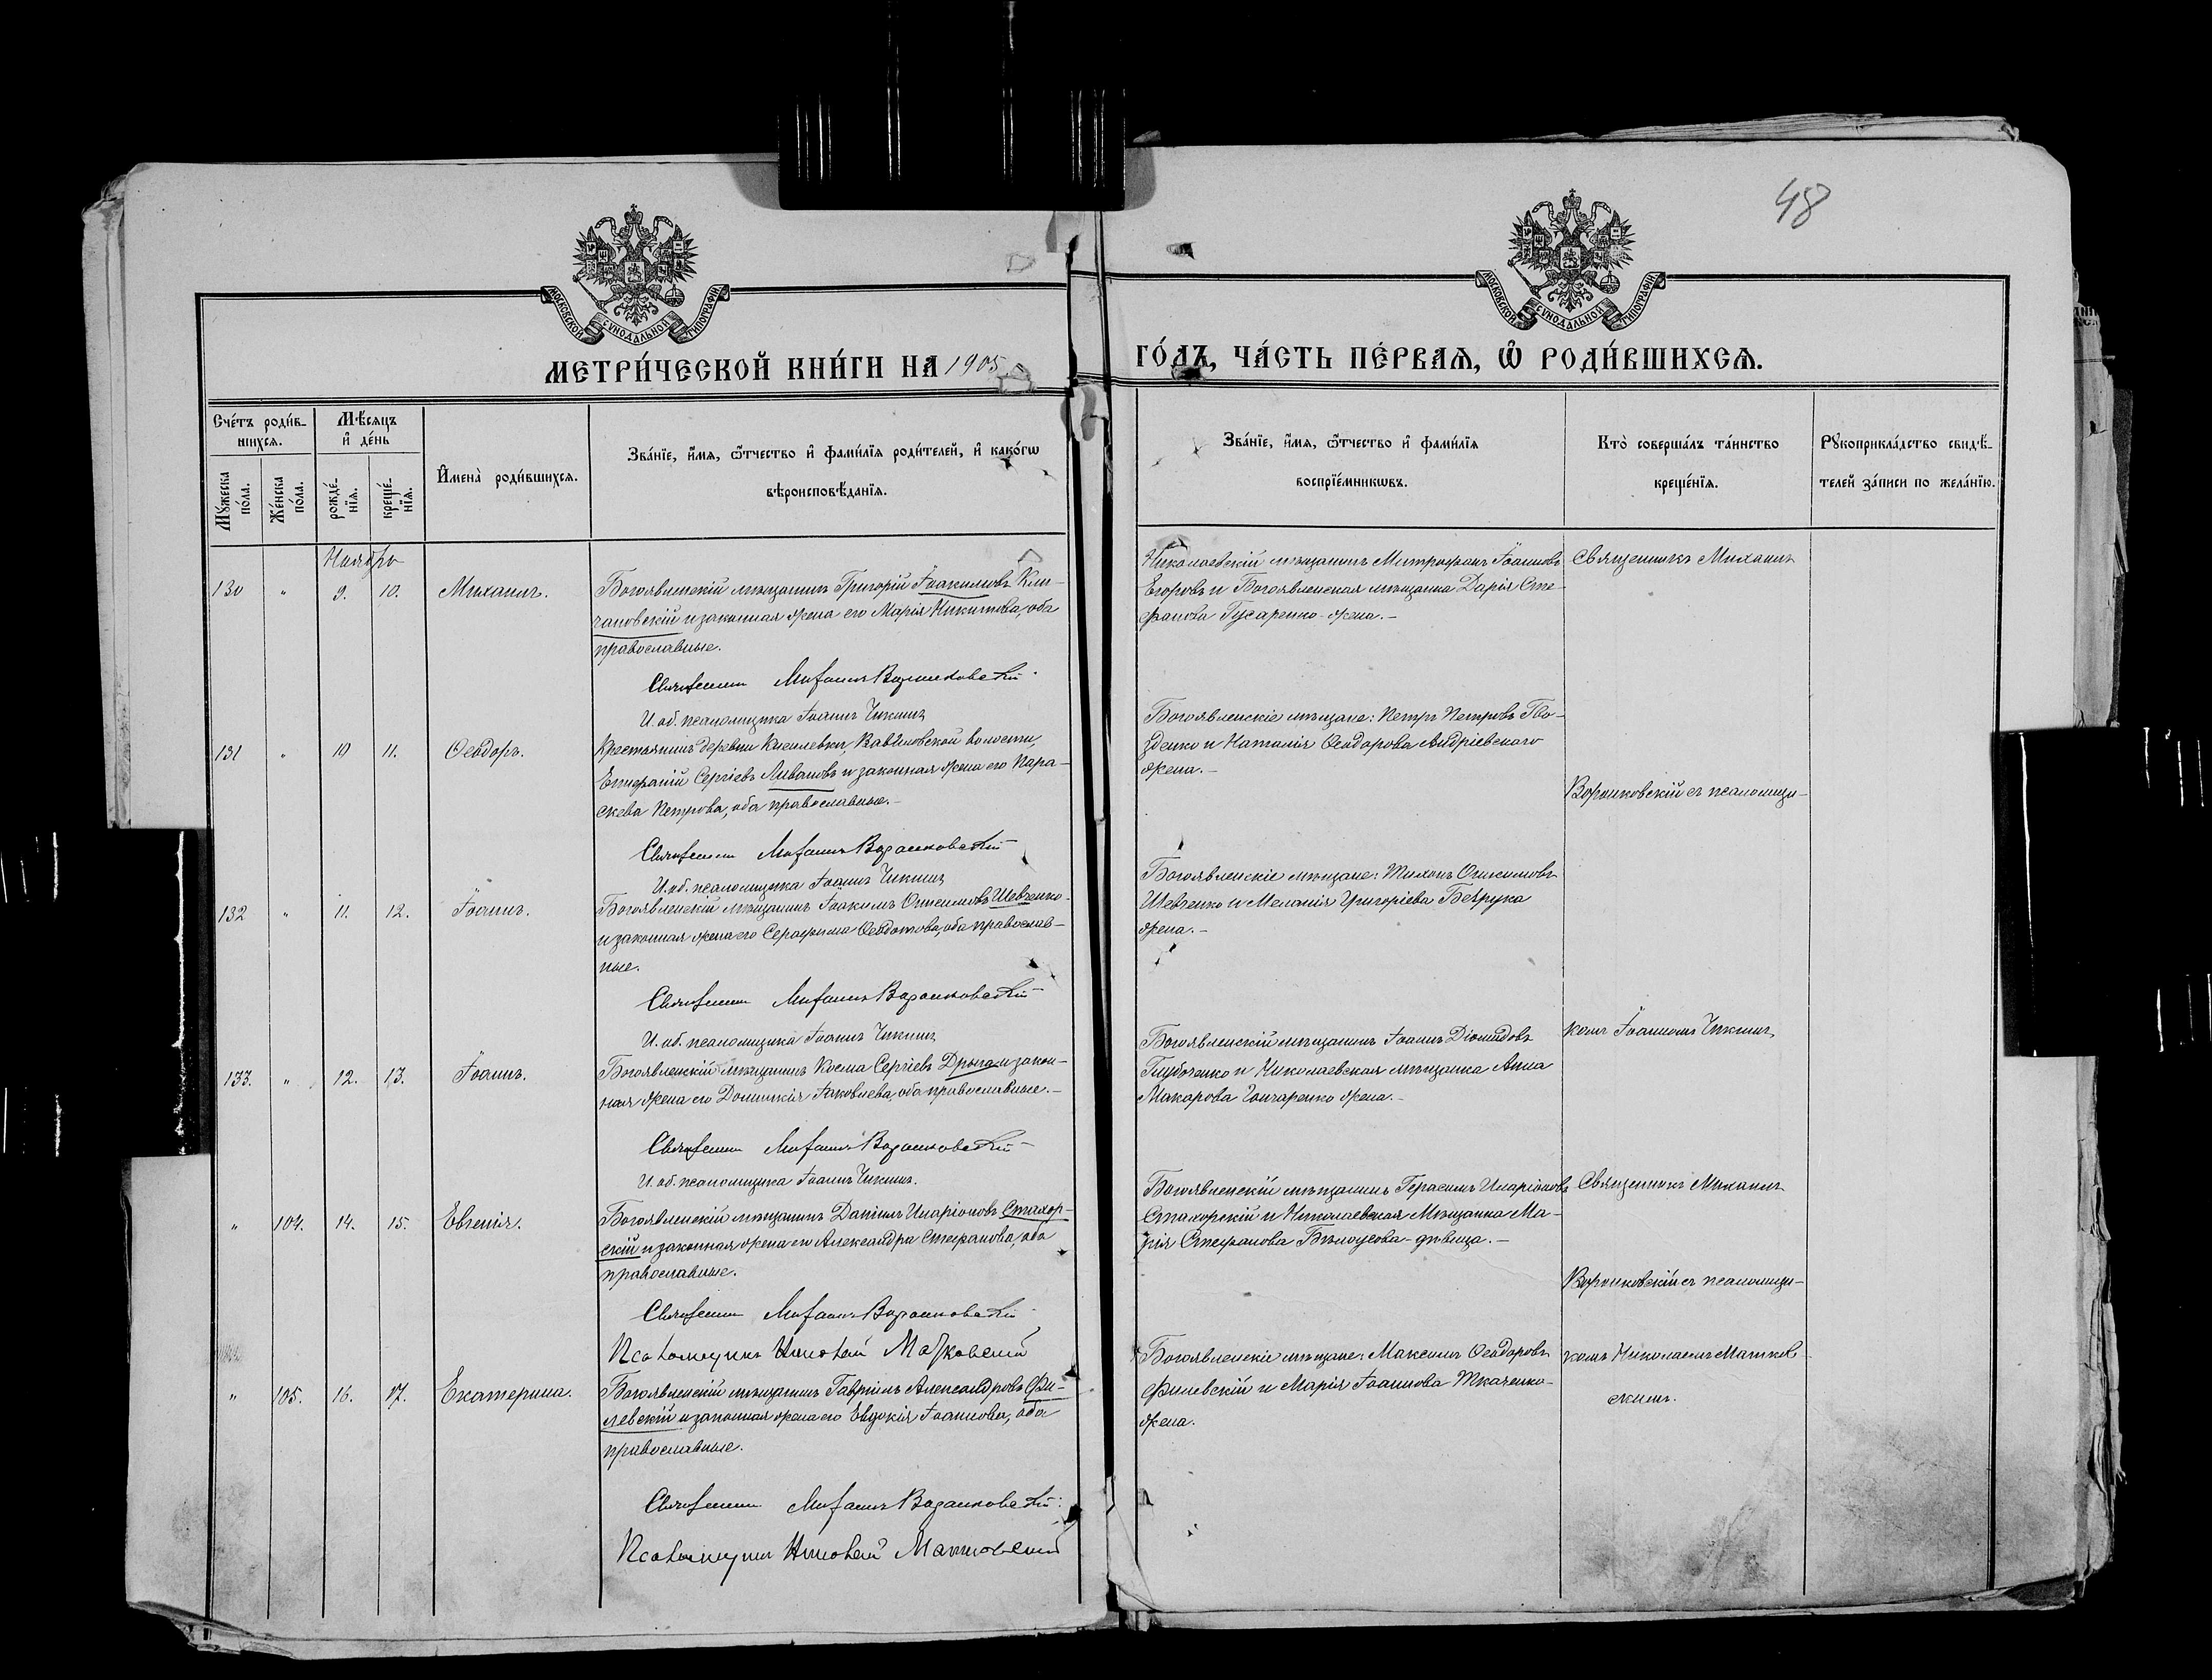 48
МОСКОВСКОЙ СѴНОДАЛЬНОЙ ТИПОГРАФІИ
МОСКОВСКОЙ СѴНОДАЛЬНОЙ ТИПОГРАФІИ
МЕТРИ́ЧЕСКОЙ КНИ́ГИ НА 1905
ГО́ДЪ, ЧА́СТЬ ПЕ́РВАЯ, Ѡ҆ РОДИ́ВШИХСЯ.
Сче́тъ роди́в-
шихся.
Мꙋжеска по́ла.
Же́нска по́ла.
Мѣ́сяцъ
и҆ де́нь
рожде́-
нїя.
креще́-
нїя.
И҆мена̀ роди́вшихся.
Зва́нїе, и҆́мя, ѻ҆́тчество и҆ фами́лїя роди́телей, и҆ како́гѡ
вѣроисповѣ́данїя.
Зва́нїе, и҆́мя, ѻ҆́тчество и҆ фами́лїя
воспрїе́мникѡвъ.
Кто̀ соверша́лъ та́инство
креще́нїя.
Рꙋкоприкла́дство свидѣ́-
телей за́писи по жела́нїю.
Ноябрь
130 " 9. 10. Михаилъ.
Богоявленскій мѣщанинъ Григорій Іоакимовъ Кли-
чановскій и законная жена его Марія Никитова, оба
православные.
Священникъ Михаилъ Воронковскій
И. об. псаломщика Іоаннъ Чикинъ
Николаевскій мѣщанинъ Митрофанъ Іоанновъ
Егоровъ и Богоявленская мѣщанка Дарія Сте-
фанова Гусаренко - жена. -
Священникъ Михаилъ
131 " 10 11. Ѳеодоръ.
Крестьянинъ деревни Киселевки Вавиловской волости,
Епифаній Сергіевъ Ливановъ и законная жена его Пара-
скева Петрова, оба православные. -
Священникъ Михаилъ Воронковскій
И. об. псаломщика Іоаннъ Чикинъ
Богоявленскіе мѣщане: Петръ Петровъ Гво-
зденко и Наталія Ѳеодорова Андріевскаго
жена. -
Воронковскій съ псаломщи-
132 " 11. 12. Іоаннъ.
Богоявленскій мѣщанинъ Іоакимъ Онисимовъ Шевченко
и законная жена его Серафима Ѳедотова, оба православ-
ные.
Священникъ Михаилъ Воронковскій
И. об. псаломщика Іоаннъ Чикинъ
Богоявленскіе мѣщане: Тихонъ Онисимовъ
Шевченко и Меланія Григоріева
жена. -
133. " 12. 13. Іоаннъ.
Богоявленскій мѣщанинъ Косма Сергіевъ Дрыга и закон-
ная жена его Домникія Іаковлева, оба православные. -
Священникъ Михаилъ Воронковскій
И. об. псаломщика Іоаннъ Чикинъ.
Богоявленскій мѣщанинъ Іоаннъ Діомидовъ
и Николаевская мѣщанка Анна
Макарова Гончаренко жена. -
комъ Іоанномъ Чикинъ
" 104. 14. 15. Евгенія.
Богоявленскій мѣщанинъ Даніилъ Иларіоновъ Стахор-
скій и законная жена его Александра Стефанова, оба
православные.
Священникъ Михаилъ Воронковскій
Псаломщикъ Николай Матковскій
Богоявленскій мѣщанинъ Герасимъ Иларіоновъ
Стахорскій и Николаевская Мѣщанка Ма-
рія Стефанова Бѣлоусова - дѣвица. -
Священникъ Михаилъ
Воронковскій съ псаломщи-
" 105. 16. 17. Екатерина.
Богоявленскій мѣщанинъ Гавріилъ Александровъ Фи-
левскій и законная жена его Евдокія Іоаннова, оба
православные.
Священникъ Михаилъ Воронковскій
Псаломщикъ Николай Матковскій
Богоявленскіе мѣщане: Максимъ Ѳеодоровъ
Филевскій и Марія Іоаннова Ткаченко -
жена.
комъ Николаемъ Матков-
скимъ.